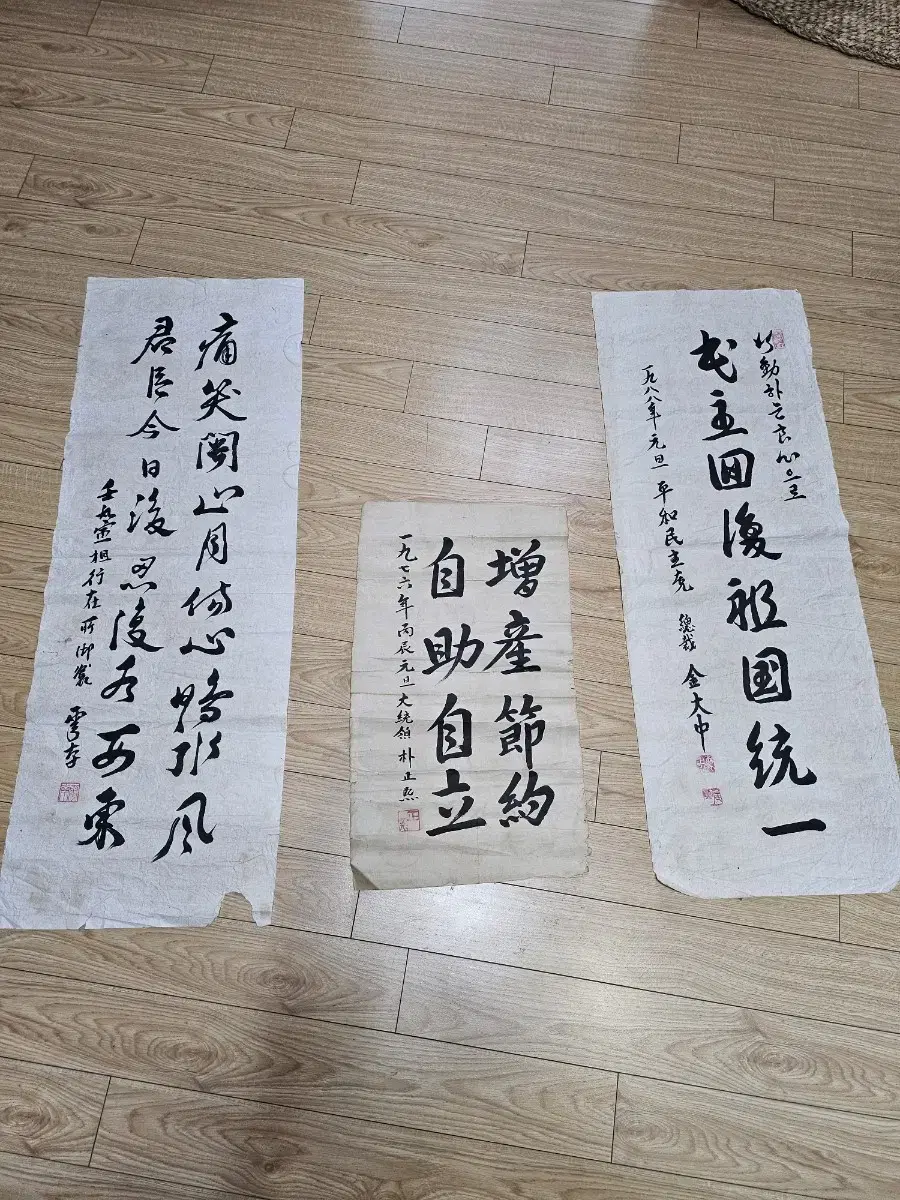 痛哭関山月傷心鴨水風
君臣今日後忍復各西東
壬乱宣祖行在所御製
增産節約
自助自立
一九七六年 丙辰元旦 大統領 朴正熙
行動하는 良心으로
民主囬復祖国統一
一九八八年 元旦 平和民主党 總裁 金大中